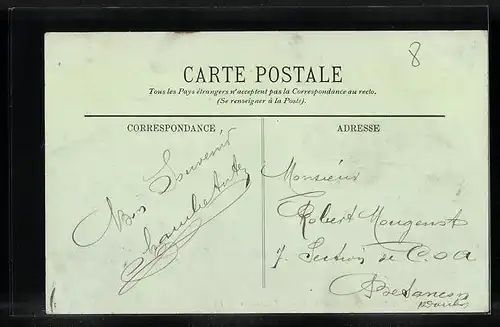 8
CARTE POSTALE
Tous les Pays étrangers n'acceptent pas la Correspondance au recto.
(Se renseigner à la Poste).
CORRESPONDANCE
ADRESSE
Souvenir
Monsieur
Robert Mougenot
7e Section de C.O.A
Besançon
Doubs